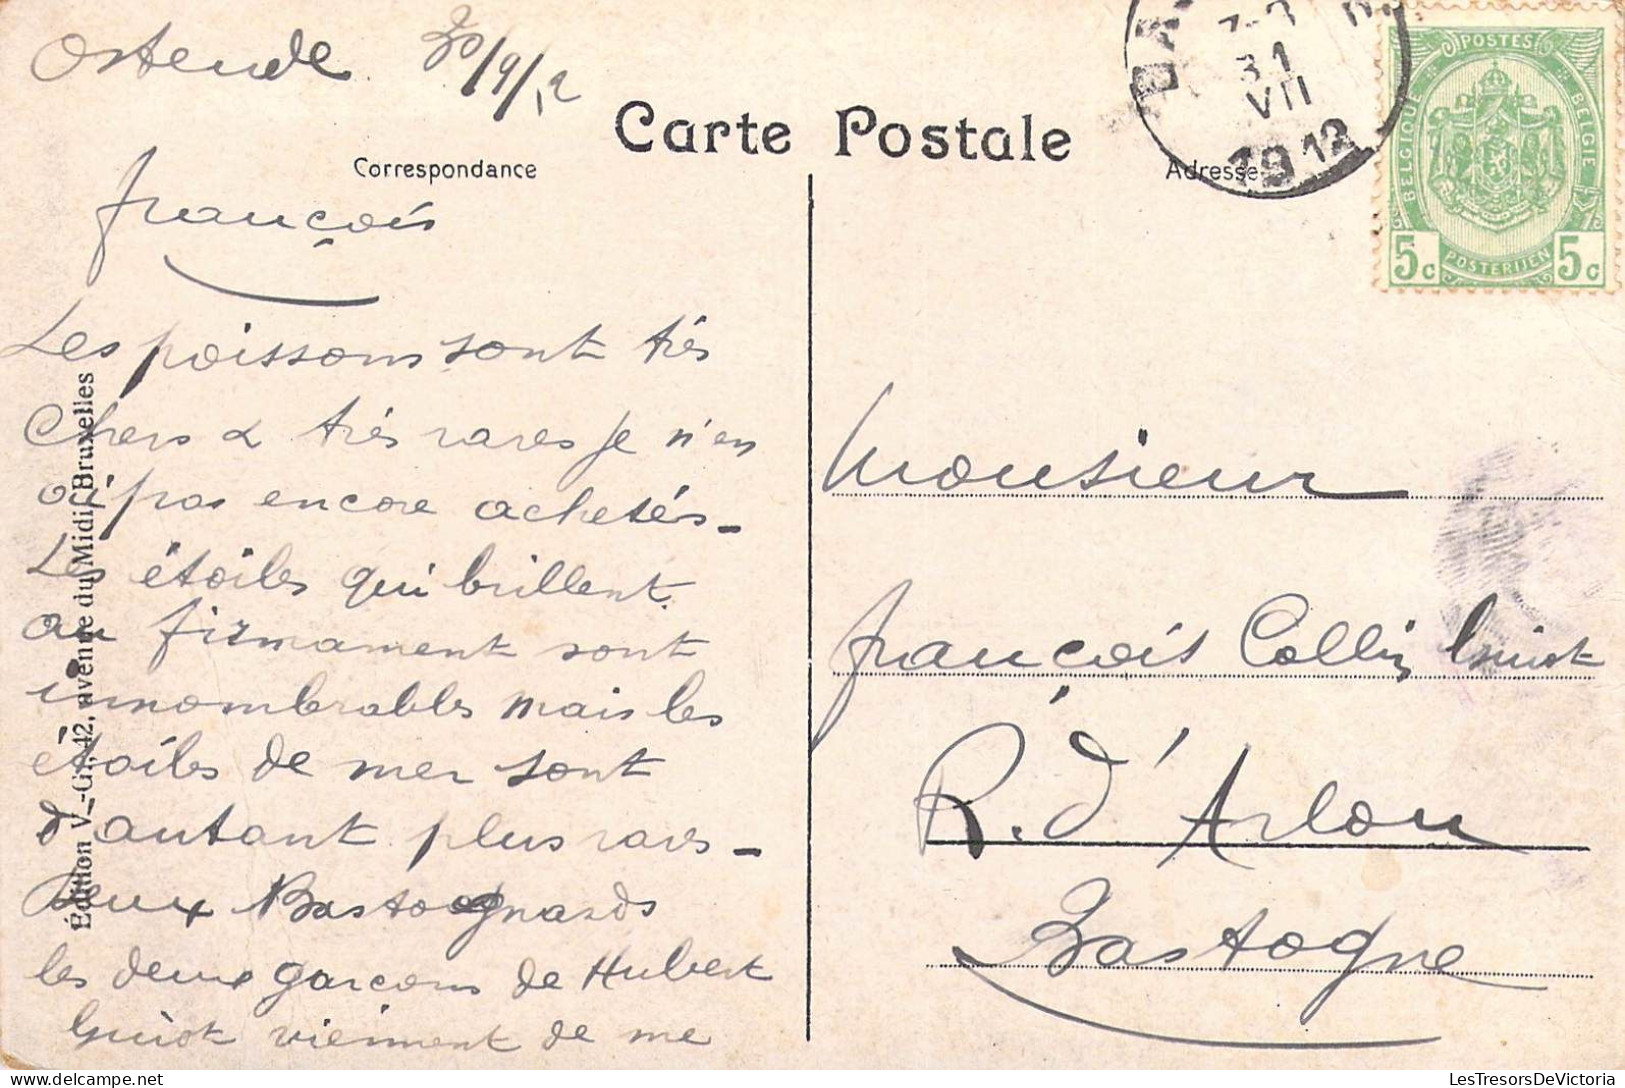 Ostende 30/9/12
Carte Postale
Correspondance
Adresse
François
Les poissons sont très
chers & très rares je n'en
ai pas encore achetés -
Les étoiles qui brillent
au firmament sont
innombrables mais les
étoiles de mer sont
d'autant plus rares -
Deux Bastognards
les deux garçons de Hubert
Guiot viennent de me
Édition V.-G., 42, avenue du Midi, Bruxelles
BA
7-8
31
VII
1912
POSTES
BELGIQUE
BELGIE
POSTERIJEN
5c 5c
Monsieur
François Collin Guiot
R. d'Arlon
Bastogne
LesTresorsDeVictoria